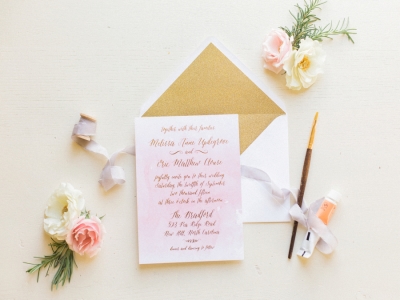 together with their families
Melissa Anne Updegrove
and
Eric Matthew Clowe
joyfully invite you to their wedding
Saturday, the twelfth of September
two thousand fifteen
at three o'clock in the afternoon
The Bradford
523 Pea Ridge Road
New Hill, North Carolina
dinner and dancing to follow